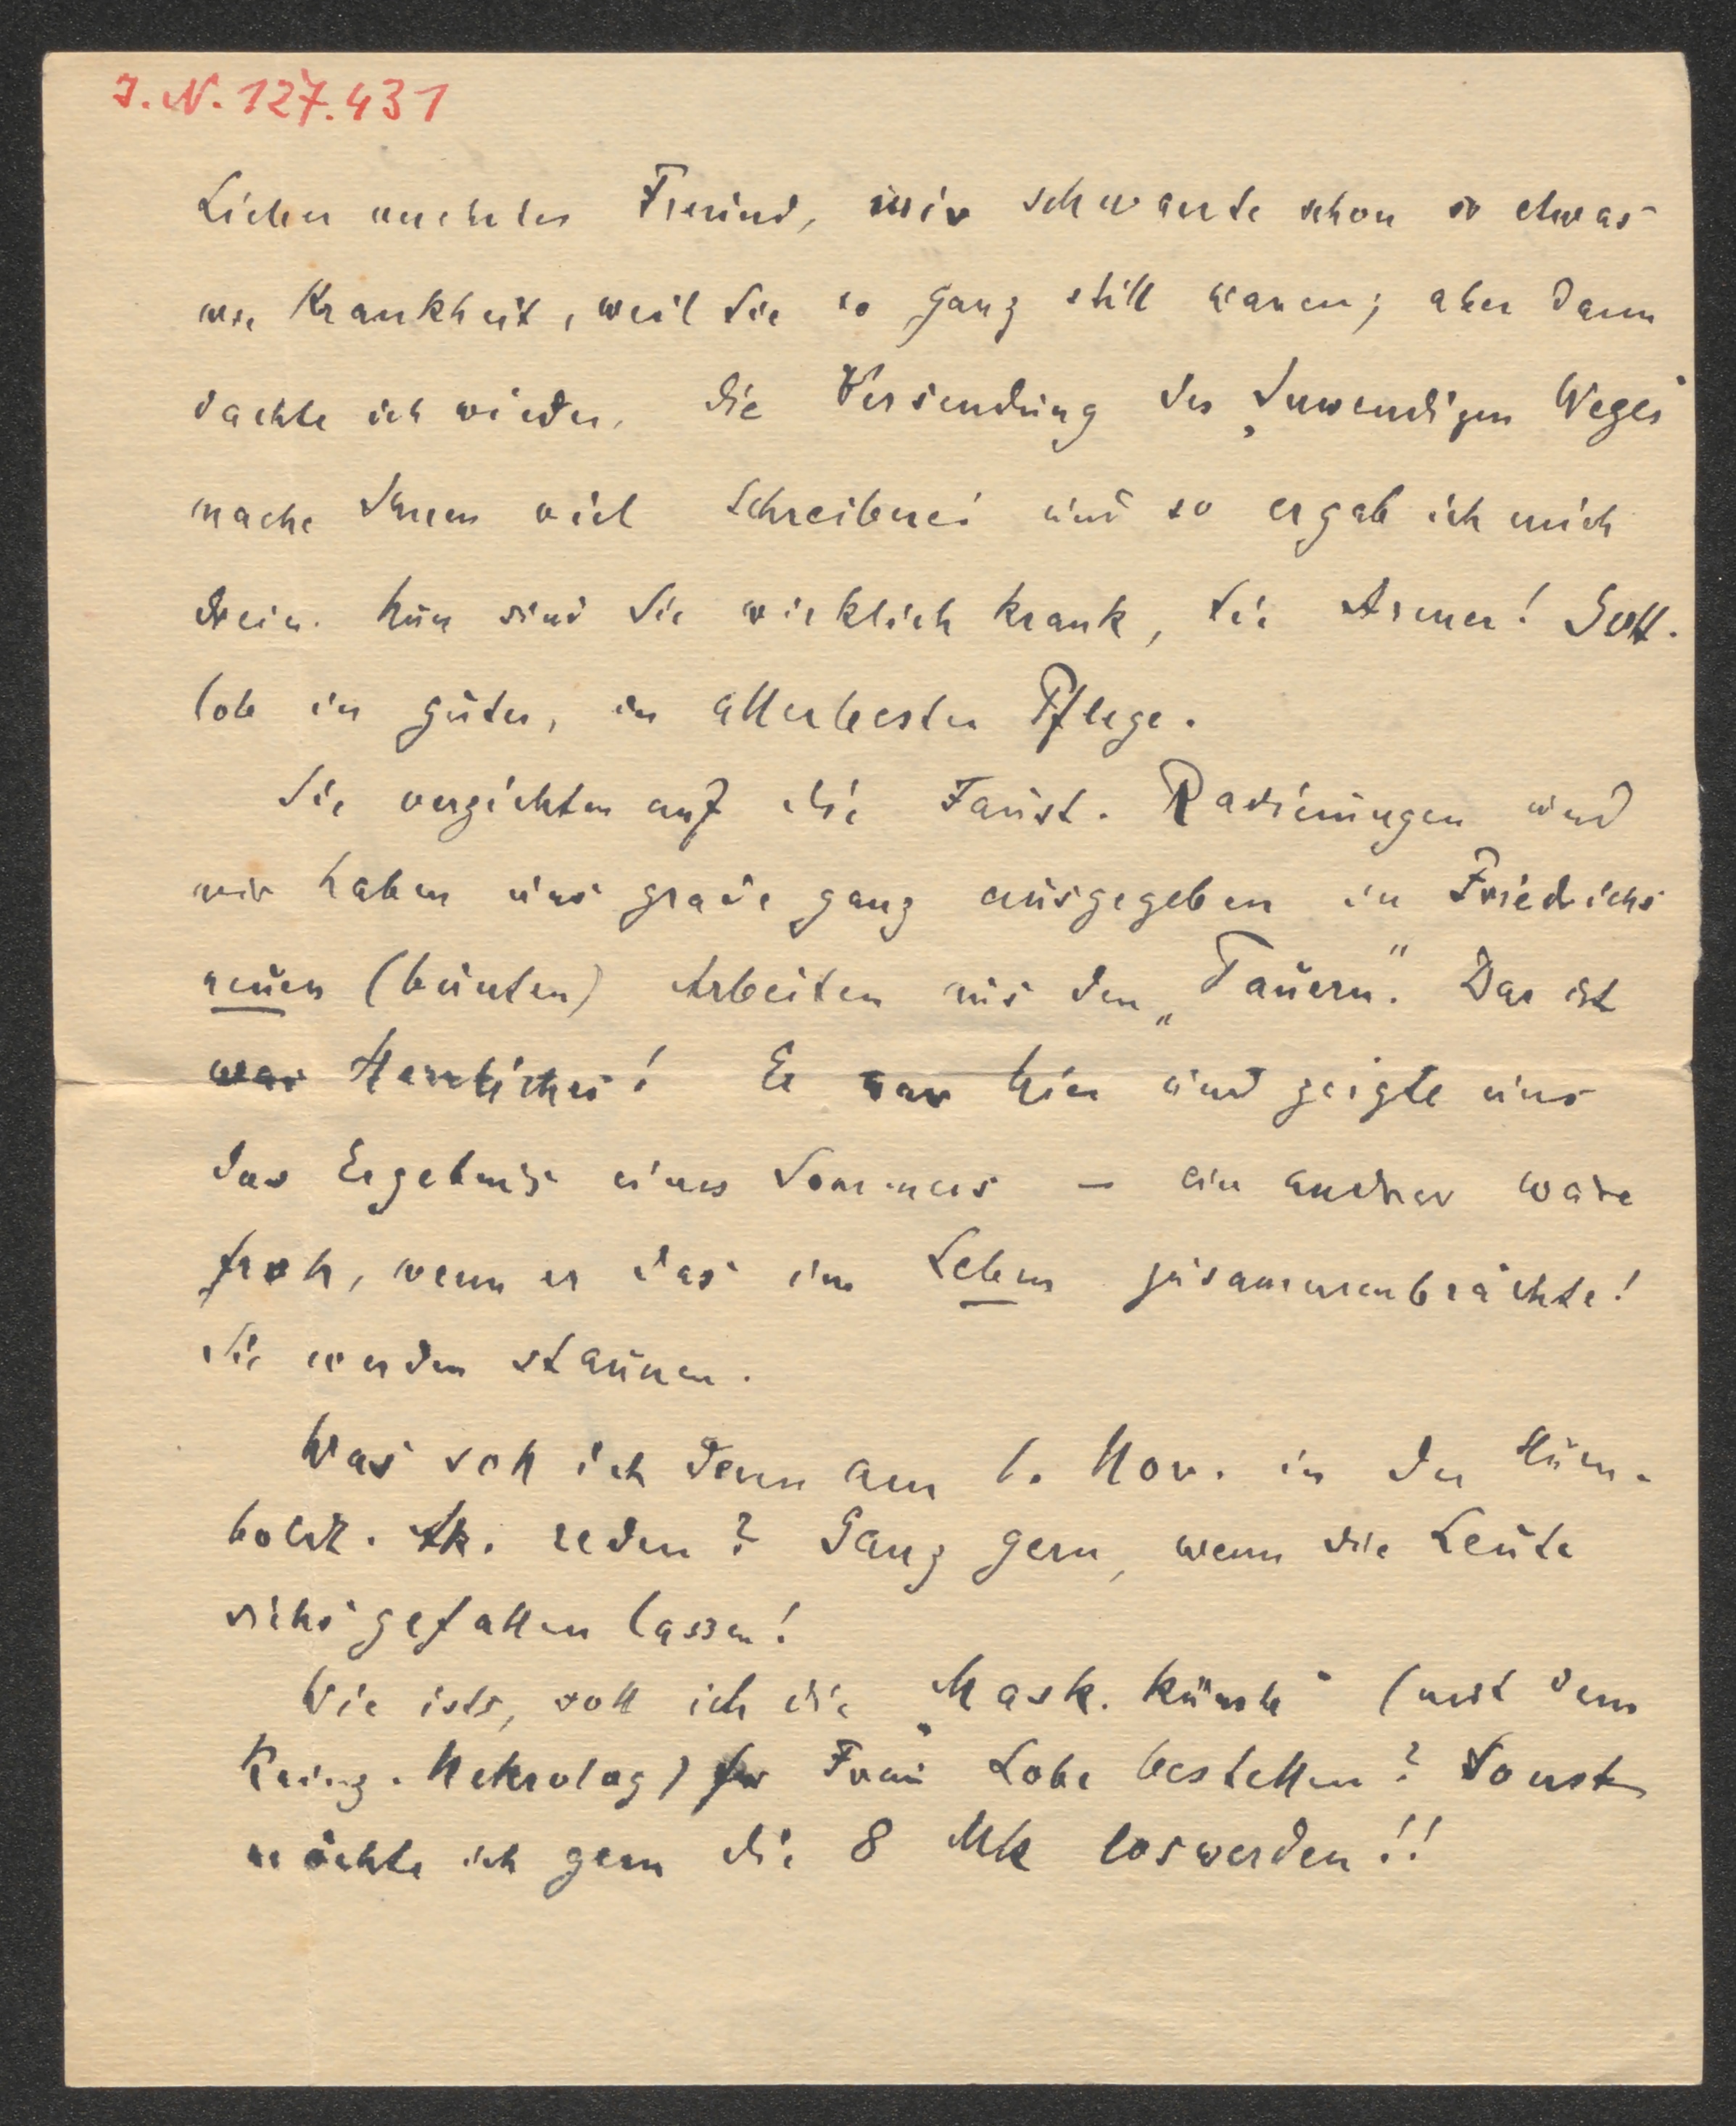 J. N. 127.431
Lieber verehrter Freund, mir schwante schon so etwas
wie Krankheit, weil Sie so ganz still waren; aber dann
dachte ich wieder, die Versendung des „Inwendigen Weges"
mache Ihnen viel Schreiberei und so ergab ich mich
drein. Nun sind Sie wirklich krank, Sie Armer! Gott-
lob in guter, in allerbester Pflege.
Sie verzichten auf die Faust-Radierungen und
wir haben uns grade ganz ausgegeben in Friedrichs
neuen (bunten) Arbeiten aus den „Tauern". Das ist
was Herrliches! Er war hier und zeigte uns
das Ergebnis eines Sommers – ein andrer wäre
froh, wenn er das im Leben zusammenbrächte!
Sie werden staunen.
Was soll ich denn am 1. Nov. in der Hum-
boldt-Ak. reden? Ganz gern, wenn die Leute
sichs gefallen lassen!
Wie ists, soll ich die „Mask. Künste" (mit dem
Nekrolog) für Frau Lobe bestellen? Sonst
möchte ich gern die 8 Mk loswerden!!